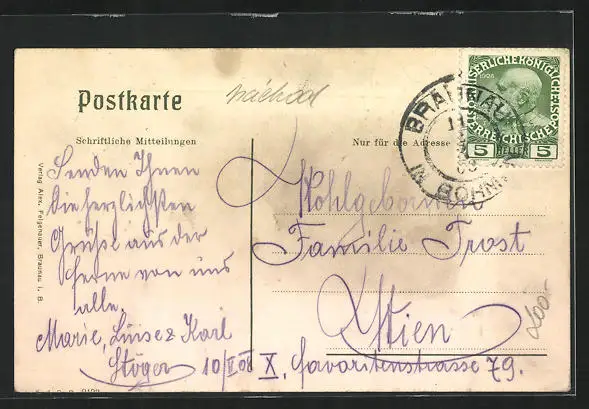 Postkarte
náchod
Schriftliche Mitteilungen
Nur für die Adresse
Senden Ihnen
die herzlichsten
Grüße aus der
Ferne von uns
alle.
Marie, Luise & Karl
Stöger 10/V 08
Wohlgeboren
Familie Trost
Wien
X, Favoritenstrasse 79.
Verlag Alex. Felgenauer, Braunau i. B.
KAISERLICHE KÖNIGLICHE
ÖSTERREICHISCHE
1908
5 HELLER 5
BRAUNAU
BÖHM
200.-